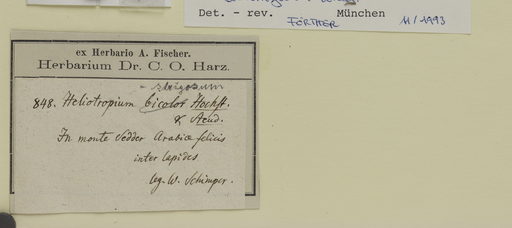 Det. - rev. FÖRTHER München 11/1993
ex Herbario A. Fischer.
Herbarium Dr. C. O. Harz.
- strigosum
848. Heliotropium bicolor Hochst.
& Steud.
In monte Sedder Arabiae felicis
inter lapides
leg. W. Schimper.